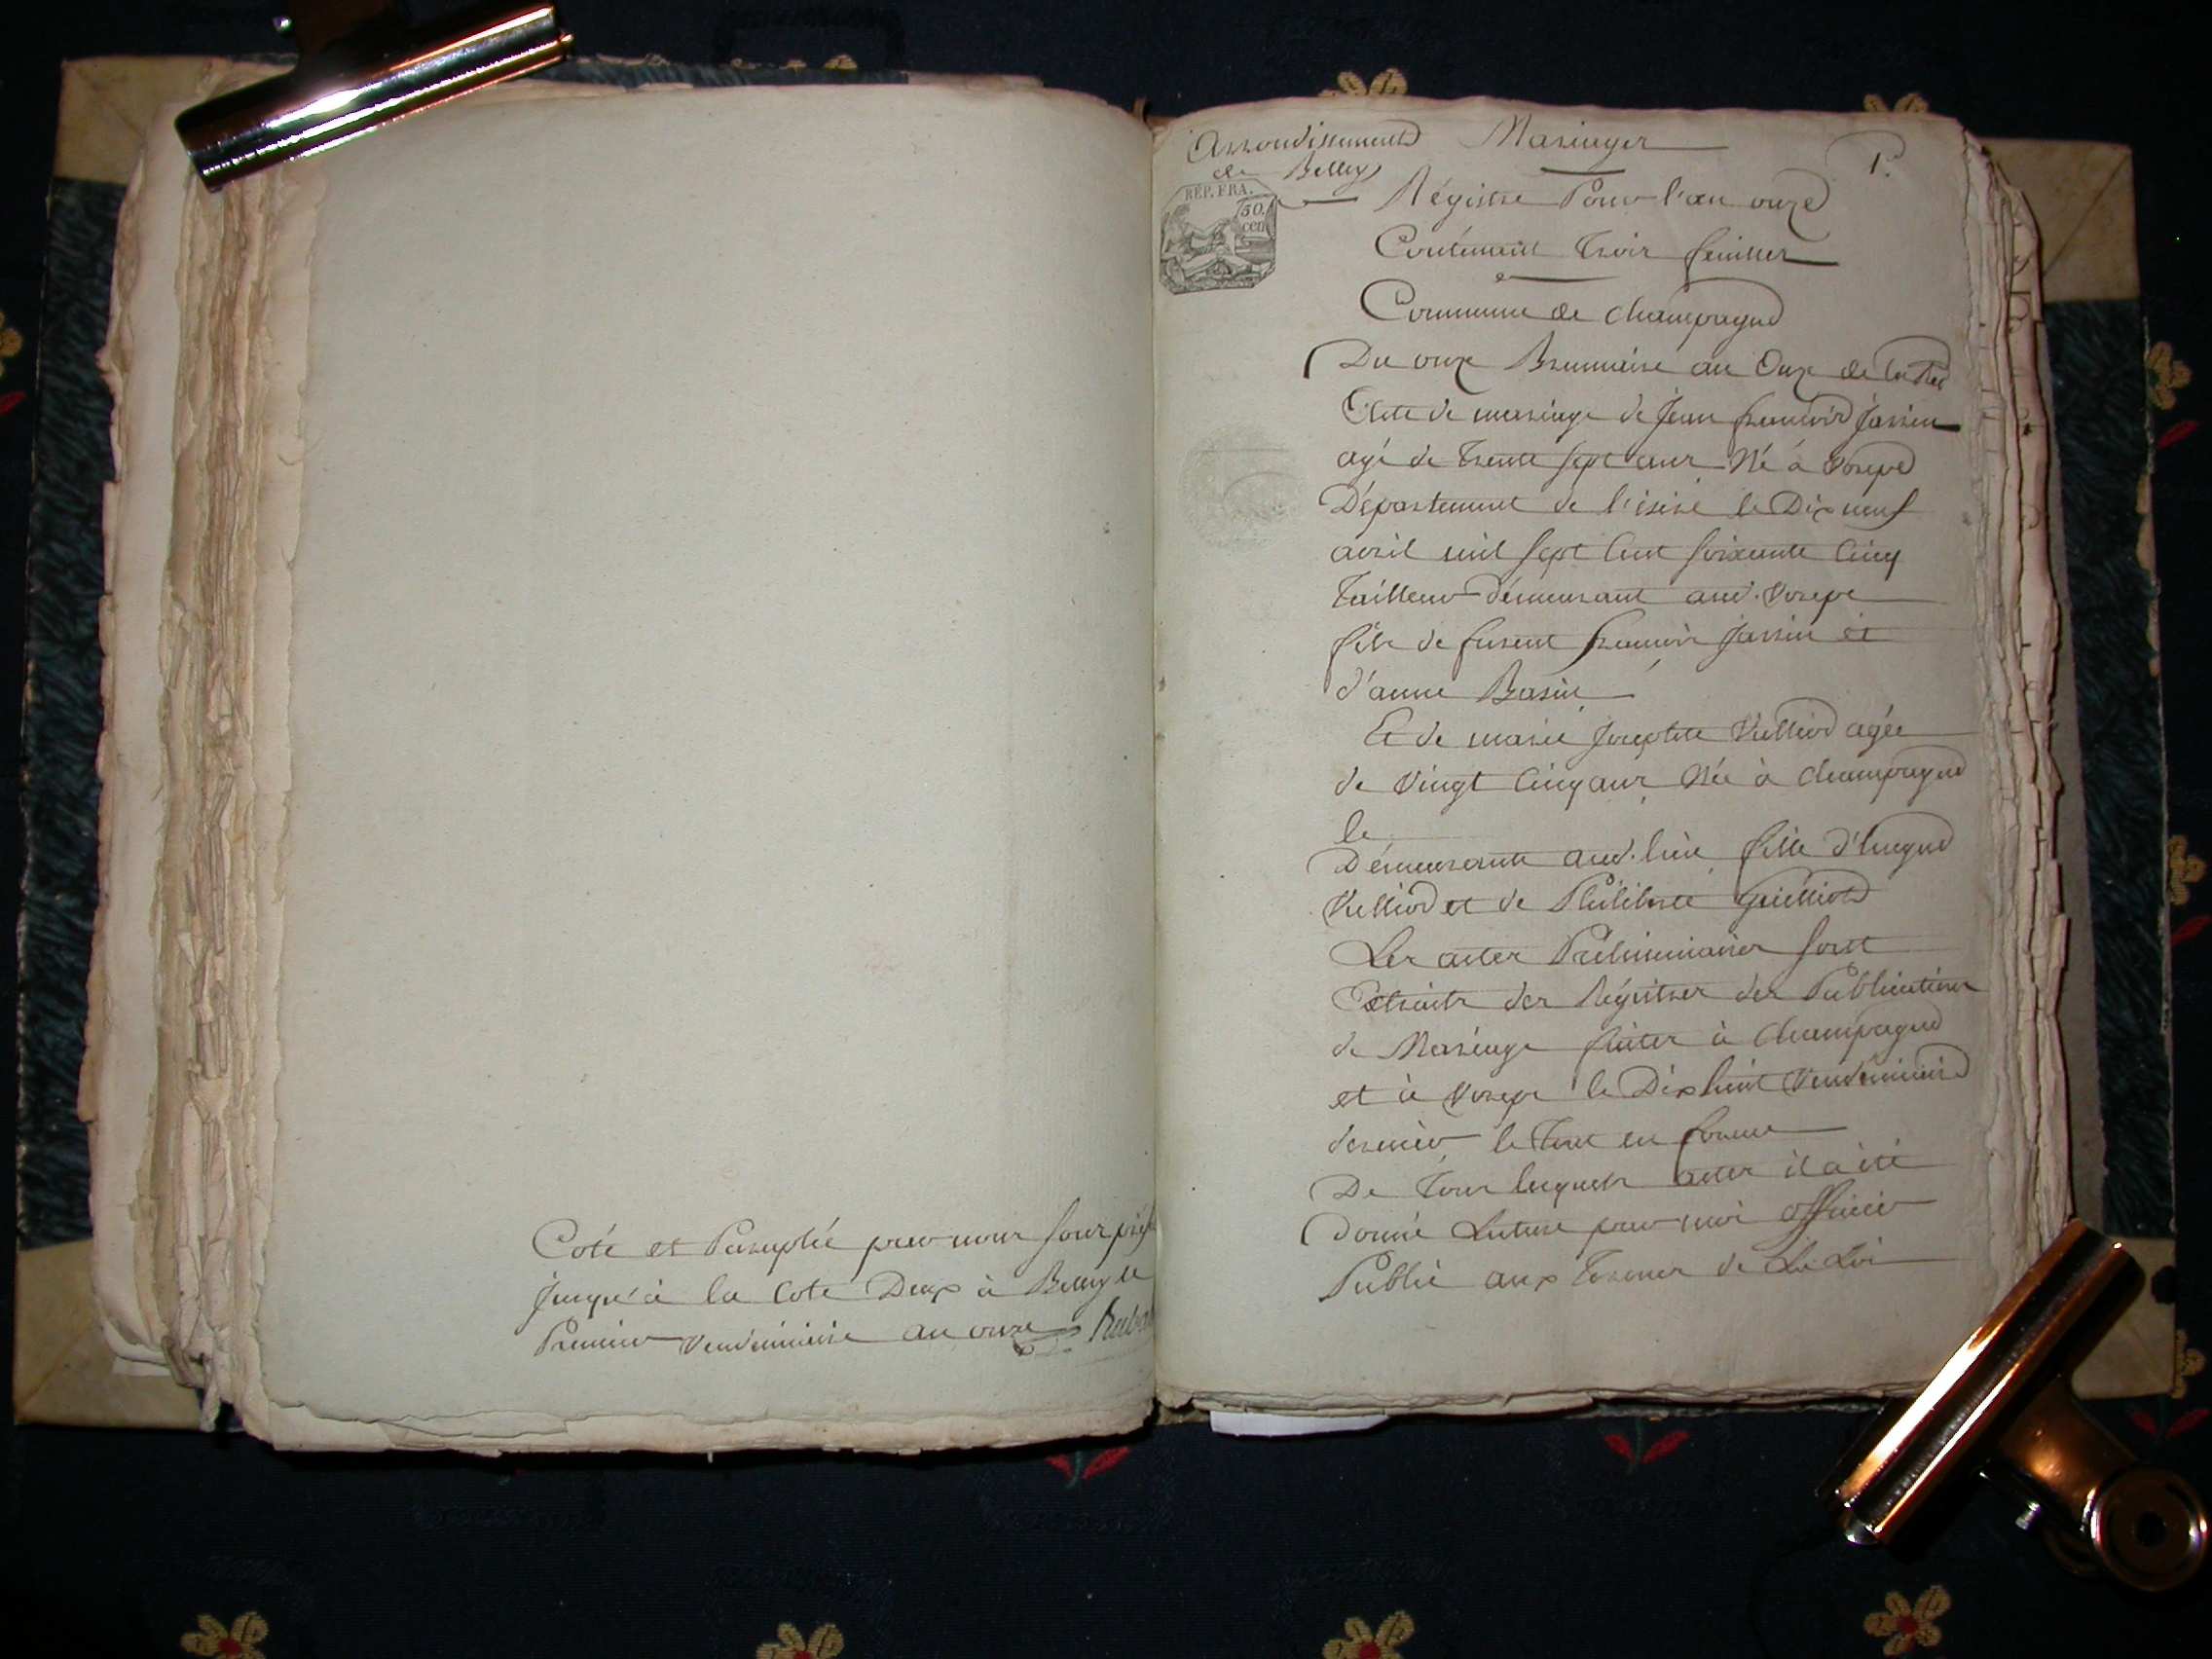 Coté et Paraphé par nous sous préf
jusqu'à la Cote Deux à Belley le
Premier vendémiaire an onze
Arrondissement
de Belley
Mariages
1.
REP. FRA.
50.
cen
Régistre Pour l'an onze
Contenant trois feuilles
Commune de champagne
Du onze Brumaire an Onze de
Acte de mariage de Jean françois
agé de trente sept ans Né à Vorepe
Département de l'isere le Dix neuf
avril mil sept cent soixante cinq
Tailleur démeurant aud. Vorepe
fils de furent françois et
d'anne Basin
Et de marie Josephte Vulliod agée
de vingt cinq ans Née à champagne
le
Démeurante aud. lieu fille d'
Vulliod et de Philiberte
Les actes Préliminaires sont
Extraits des Régistres des Publications
de Mariage faites à Champagne
et à Vorepe le Dix huit Vendemiaire
dernier le tout en forme
De tous lesquels actes il a été
donné Lecture par moi officier
Public aux termes de La Loi